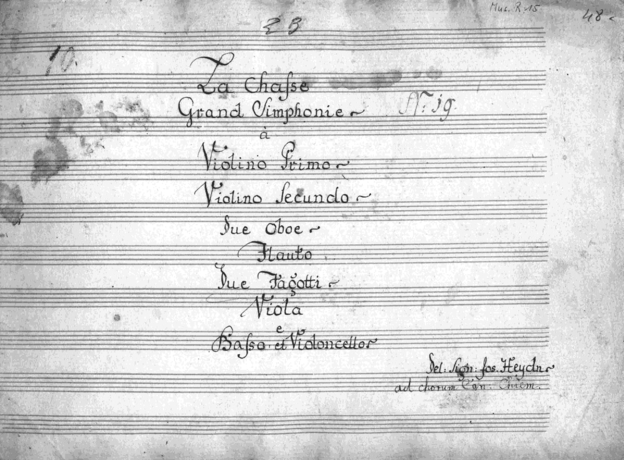 Mus. R. 15
48
10.
La Chasse
Grand Simphonie
No: 19.
à
Violino Primo
Violino Secundo
Due Oboe
Flauto
Due Fagotti
Viola
e
Basso et Violoncello
Del: Sign: Jos. Heydn
ad chorum